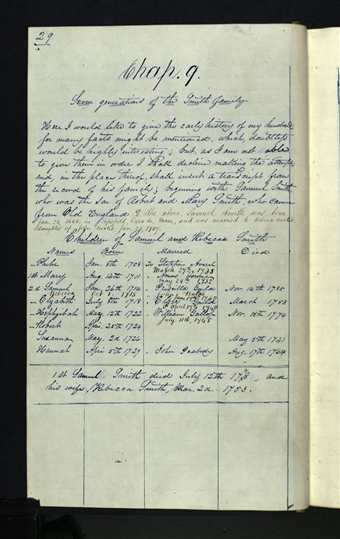 29
Chap. 9.
Seven generations of the Smith family
Here I would like to give the early history of my husband,
for many facts might be mentioned, which, doubtless
would be highly interesting; but, as I am not able
to give them in order I shall decline making the attempt,
and in the place thereof, shall insert a transcript from
the record of his family; beginning with Samuel Smith
who was the son of Robert and Mary Smith, who came
from Old England. The above Samuel Smith, was born
Jan. 26, 1666, in Mass, and was married to Rebecca Curtis,
daughter of Curtis Jan. 25, 1707.
Children of Samuel and Rebecca Smith
Names Born Married Died
Phebe Jan. 8th 1708 to Stephen Averil
1st Mary Aug. 14th 1711
2d Samuel Jan. 26th 1714 Priscilla Gould Nov. 14th 1785
Elizabeth July 8th 1718 March 1753
Hephzibah May 12th 1722 William Nov. 15th 1774
Robert Apr. 25th 1724
Susanna May 2d 1726 May 5th 1741
Hannah Apr. 5th 1729 John Peabody Aug. 17th 1764
1st Samuel Smith died July 12th 1748, and
his wife, Rebecca Smith, Mar. 2d. 1753.